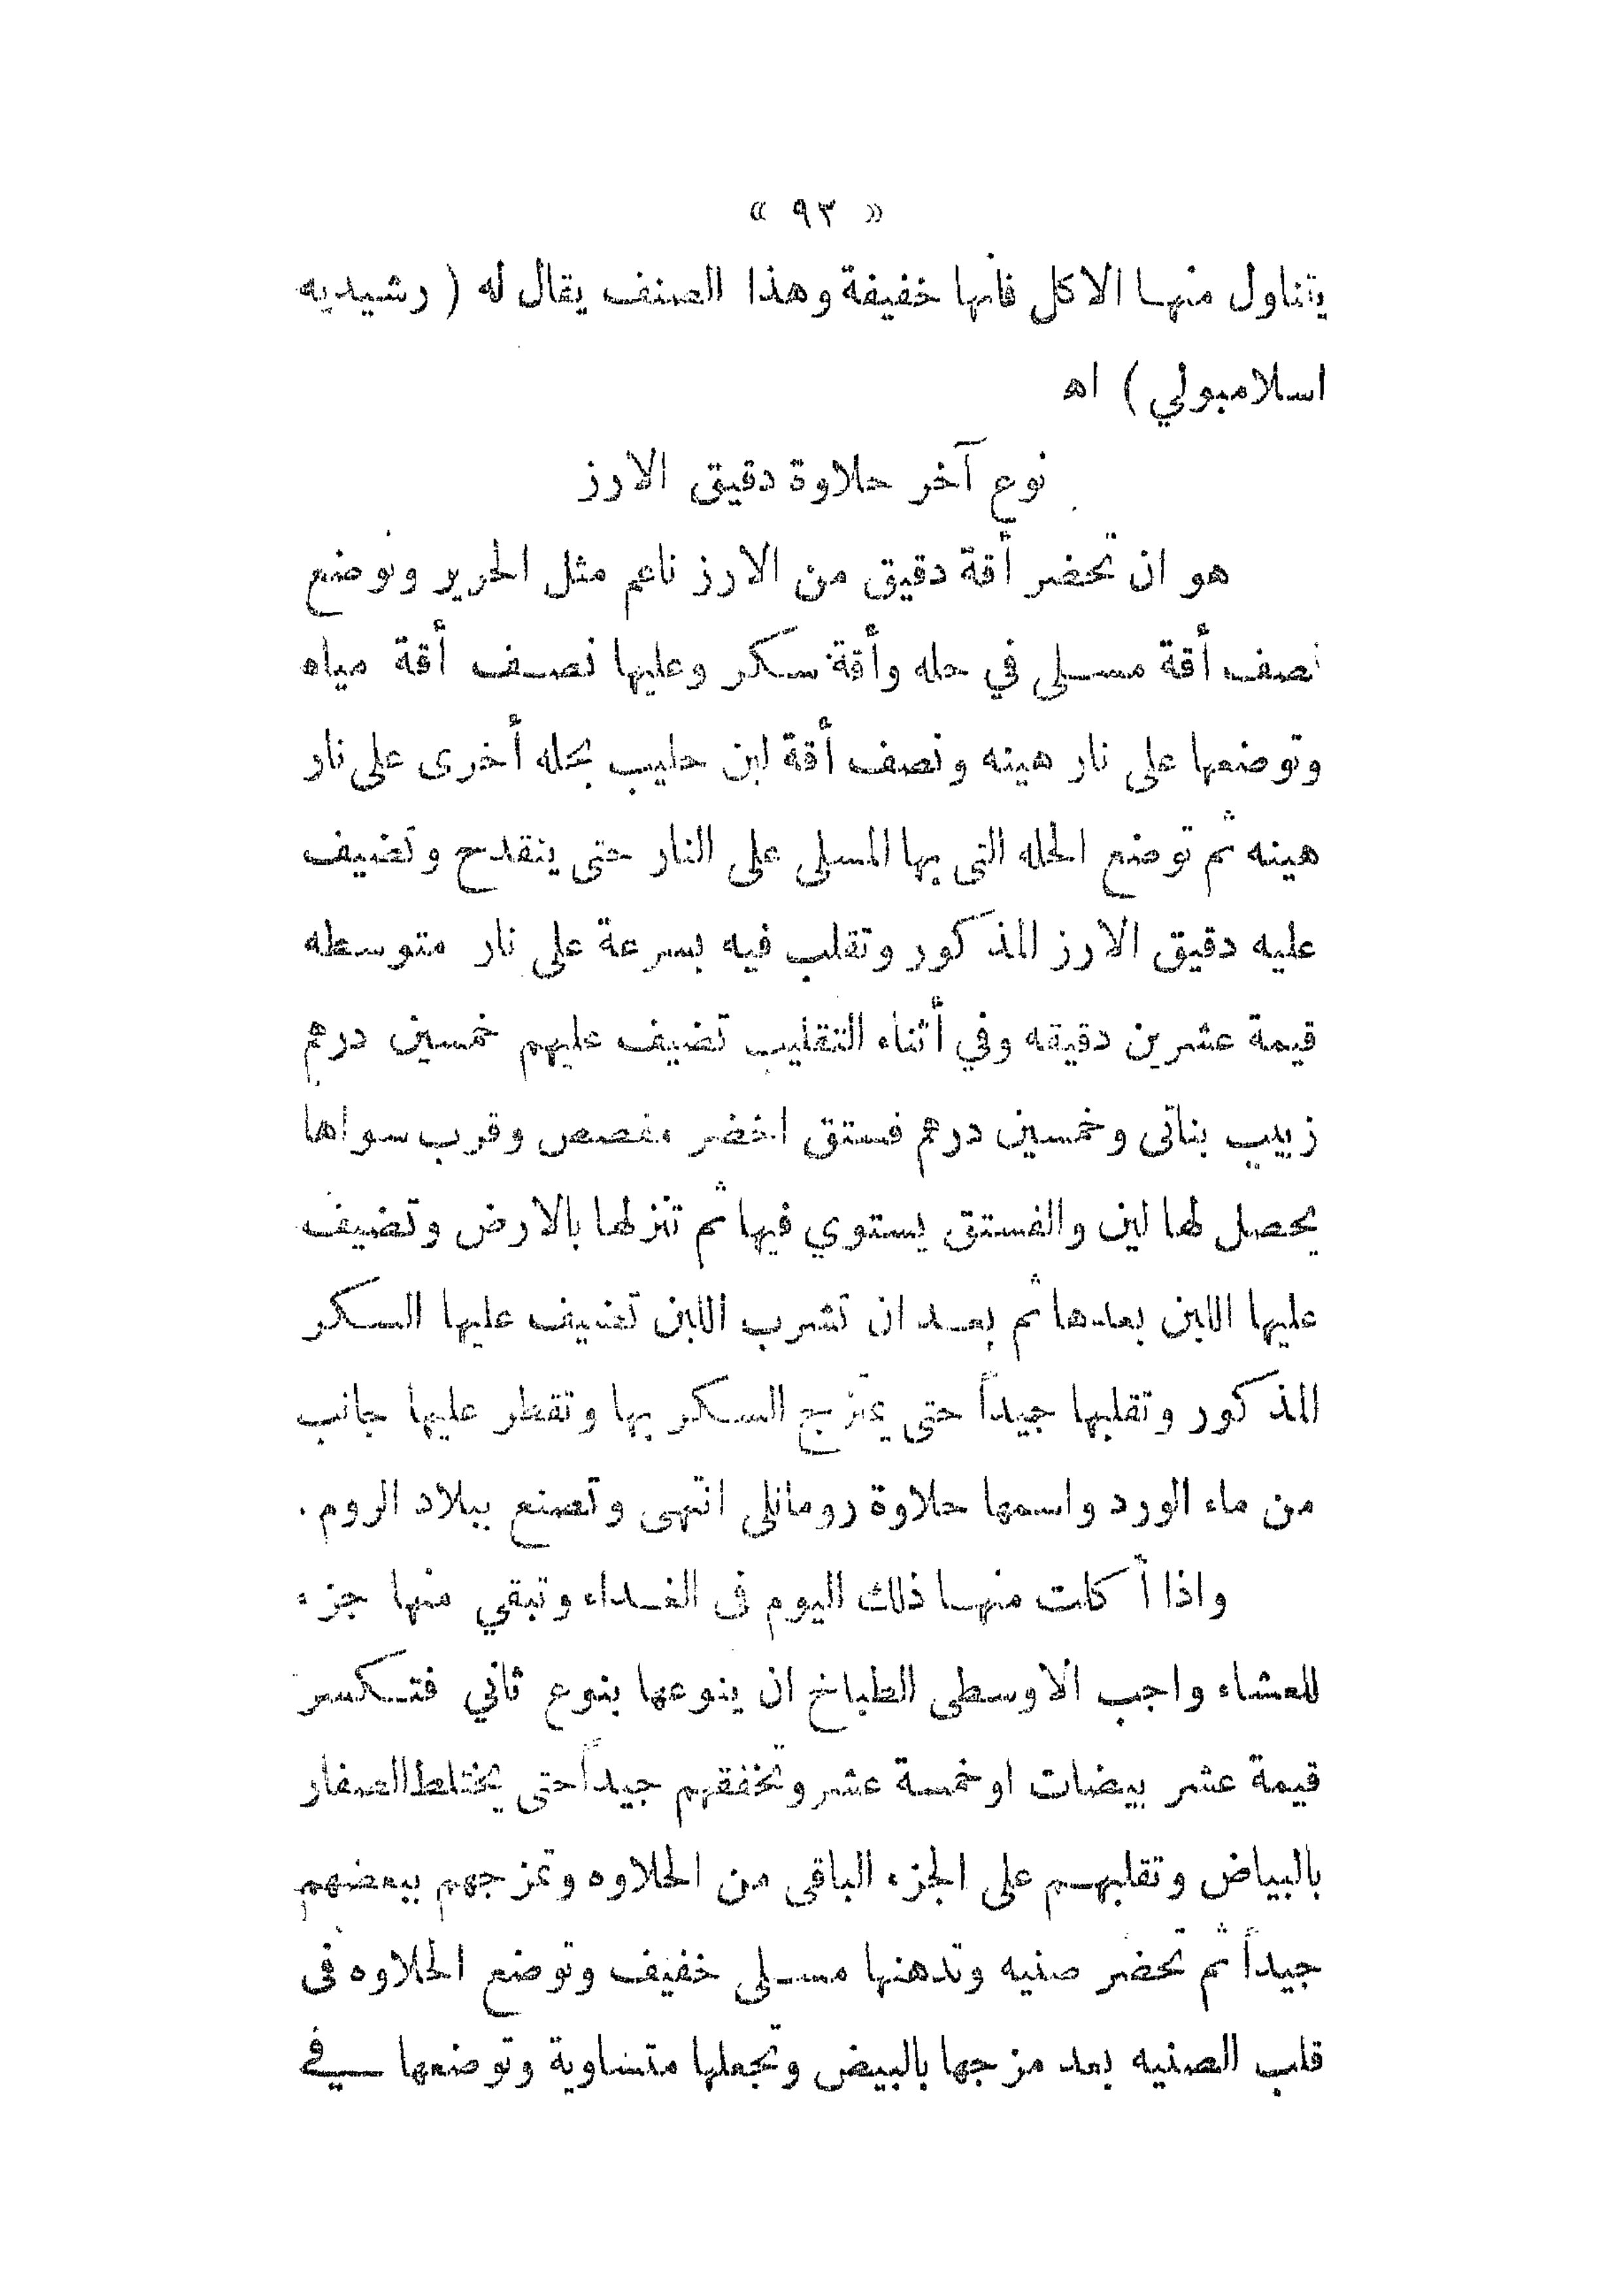 « ٩٣ »
يتناول منها الاكل فانها خفيفة وهذا الصنف يقال له ( رشيديه
اسلامبولي ) اه
نوع آخر حلاوة دقيق الارز
هو ان تحضر أقة دقيق من الارز ناعم مثل الحرير وتوضع
نصف أقة مسلى في حله وأقة سكر وعليها نصف أقة مياه
وتوضعها على نار هينه ونصف أقة لبن حليب بحله أخرى على نار
هينه ثم توضع الحله التى بها المسلى على النار حتى ينقدح وتضيف
عليه دقيق الارز المذكور وتقلب فيه بسرعة على نار متوسطه
قيمة عشرين دقيقه وفي أثناء التقليب تضيف عليهم خمسين درهم
زبيب بناتى وخمسين درهم فستق اخضر مفصص وقرب سواها
يحصل لها لين والفستق يستوي فيها ثم تنزلها بالارض وتضيف
عليها اللبن بعدها ثم بعد ان تشرب اللبن تضيف عليها السكر
المذكور وتقلبها جيداً حتى يمتزج السكر بها وتقطر عليها جانب
من ماء الورد واسمها حلاوة رومانلى انتهى وتصنع ببلاد الروم .
واذا أكلت منها ذلك اليوم فى الغداء وتبقي منها جزء
للعشاء واجب الاوسطى الطباخ ان ينوعها بنوع ثاني فتكسر
قيمة عشر بيضات او خمسة عشر وتخفقهم جيداً حتى يختلط الصفار
بالبياض وتقلبهم على الجزء الباقى من الحلاوه وتمزجهم ببعضهم
جيداً ثم تحضر صنيه وتدهنها مسلى خفيف وتوضع الحلاوه فى
قلب الصنيه بعد مزجها بالبيض وتجعلها متساوية وتوضعها في